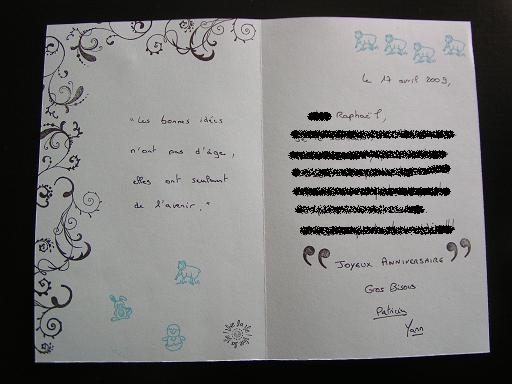 "Les bonnes idées
n'ont pas d'âge,
elles ont seulement
de l'avenir."
le 17 avril 2009,
Raphaël,
" JOYEUX ANNIVERSAIRE "
Gros Bisous
Patricia
Yann